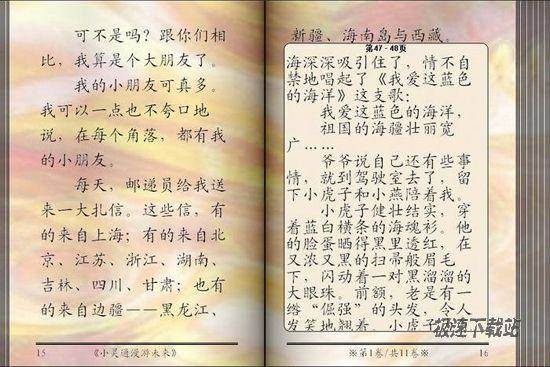 可不是吗？跟你们相
比，我算是个大朋友了。
我的小朋友可真多。
我可以一点也不夸口地
说，在每个角落，都有我
的小朋友。
每天，邮递员给我送
来一大扎信。这些信，有
的来自上海；有的来自北
京、江苏、浙江、湖南、
吉林、四川、甘肃；也有
的来自边疆——黑龙江、
15
《小灵通漫游未来》
新疆、海南岛与西藏。
第47-48页
海深深吸引住了，情不自
禁地唱起了《我爱这蓝色
的海洋》这支歌：
我爱这蓝色的海洋，
祖国的海疆壮丽宽
广……
爷爷说自己还有些事
情，就到驾驶室去了，留
下小虎子和小燕陪着我。
小虎子健壮结实，穿
着蓝白横条的海魂衫。他
的脸蛋晒得黑里透红，在
又浓又黑的扫帚般眉毛
下，闪动着一对黑溜溜的
大眼珠。前额，老是有一
绺“倔强”的头发，令人
发笑地翘着。小虎子
极速下载站
※第1卷/共11卷※
16